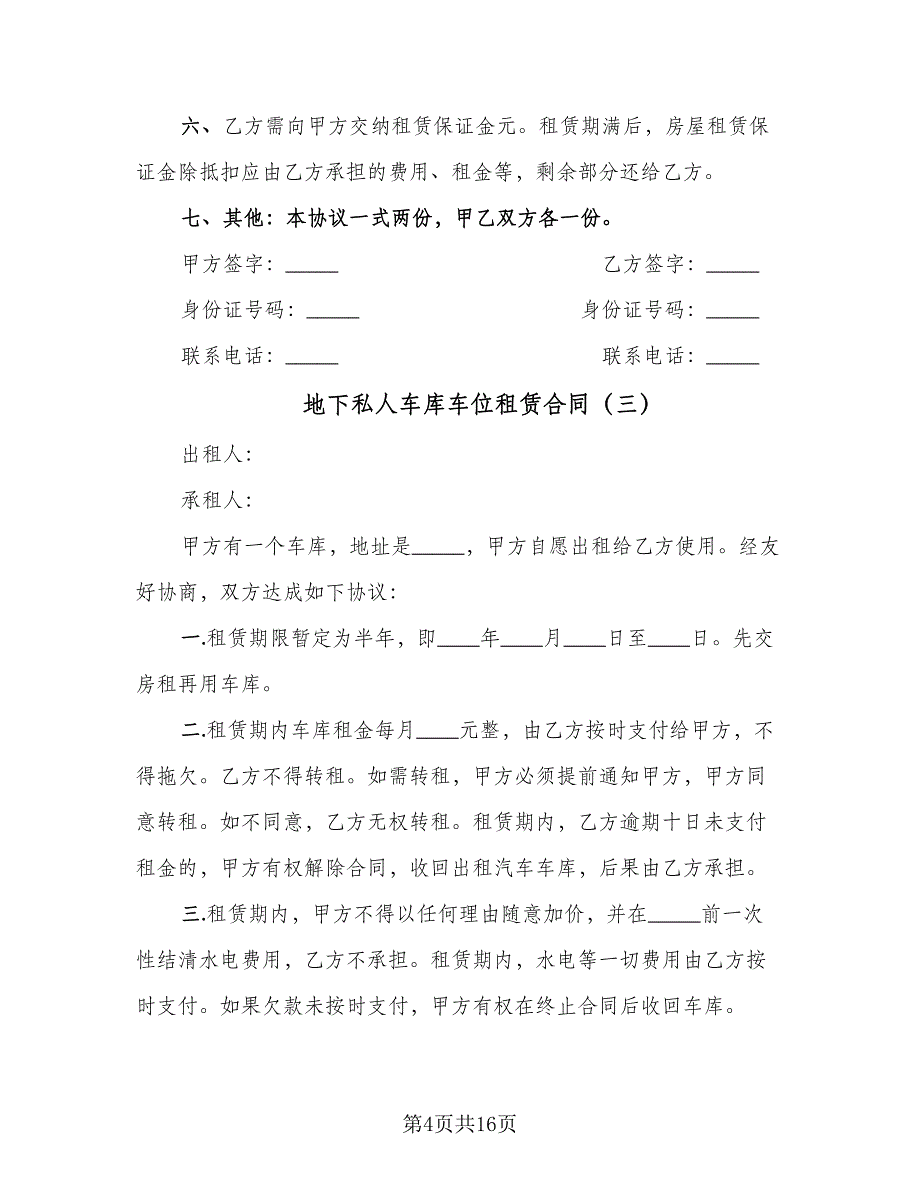 六、乙方需向甲方交纳租赁保证金元。租赁期满后，房屋租赁保
证金除抵扣应由乙方承担的费用、租金等，剩余部分还给乙方。
七、其他：本协议一式两份，甲乙双方各一份。
甲方签字：_____ 乙方签字：_____
身份证号码：_____ 身份证号码：_____
联系电话：_____ 联系电话：_____
地下私人车库车位租赁合同（三）
出租人：
承租人：
甲方有一个车库，地址是_____，甲方自愿出租给乙方使用。经友
好协商，双方达成如下协议：
一.租赁期限暂定为半年，即____年____月____日至____日。先交
房租再用车库。
二.租赁期内车库租金每月____元整，由乙方按时支付给甲方，不
得拖欠。乙方不得转租。如需转租，甲方必须提前通知甲方，甲方同
意转租。如不同意，乙方无权转租。租赁期内，乙方逾期十日未支付
租金的，甲方有权解除合同，收回出租汽车车库，后果由乙方承担。
三.租赁期内，甲方不得以任何理由随意加价，并在_____前一次
性结清水电费用，乙方不承担。租赁期内，水电等一切费用由乙方按
时支付。如果欠款未按时支付，甲方有权在终止合同后收回车库。
第4页共16页